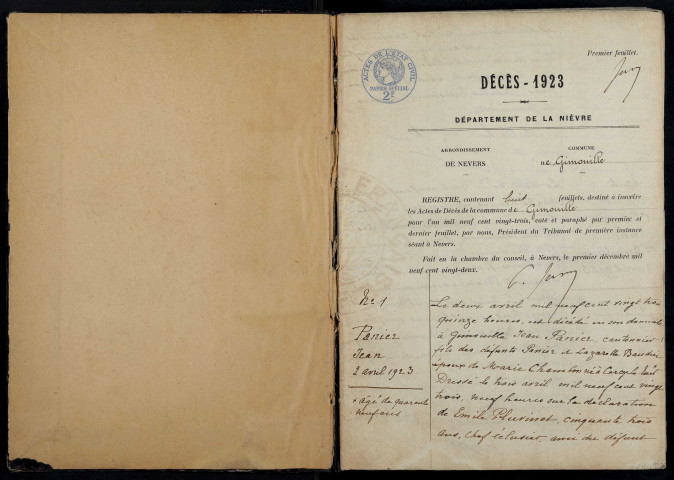 Premier feuillet.
ACTES DE L'ETAT CIVIL
PAPIER SPECIAL
2F
DÉCÈS - 1923
DÉPARTEMENT DE LA NIÈVRE
ARRONDISSEMENT
DE NEVERS
COMMUNE
DE Gimouille
REGISTRE, contenant huit feuillets, destiné à inscrire
les Actes de Décès de la commune de Gimouille
pour l'an mil neuf cent vingt-trois, coté et paraphé par premier et
dernier feuillet, par nous, Président du Tribunal de première instance
séant à Nevers.
Fait en la chambre du conseil, à Nevers, le premier décembre mil
neuf cent vingt-deux.
No 1
Panier
Jean
2 avril 1923
+ âgé de quarante
neuf ans
Le deux avril mil neuf cent vingt trois
quinze heures, est décédé en son domicile
à Gimouille Jean Panier, cantonnier +
fils des défunts Panier et Lazarette
époux de Marie
Dressé le trois avril mil neuf cent vingt
trois, neuf heures sur la déclaration
de Emile Pluvinet, cinquante trois
ans, Chef éclusier, ami du défunt